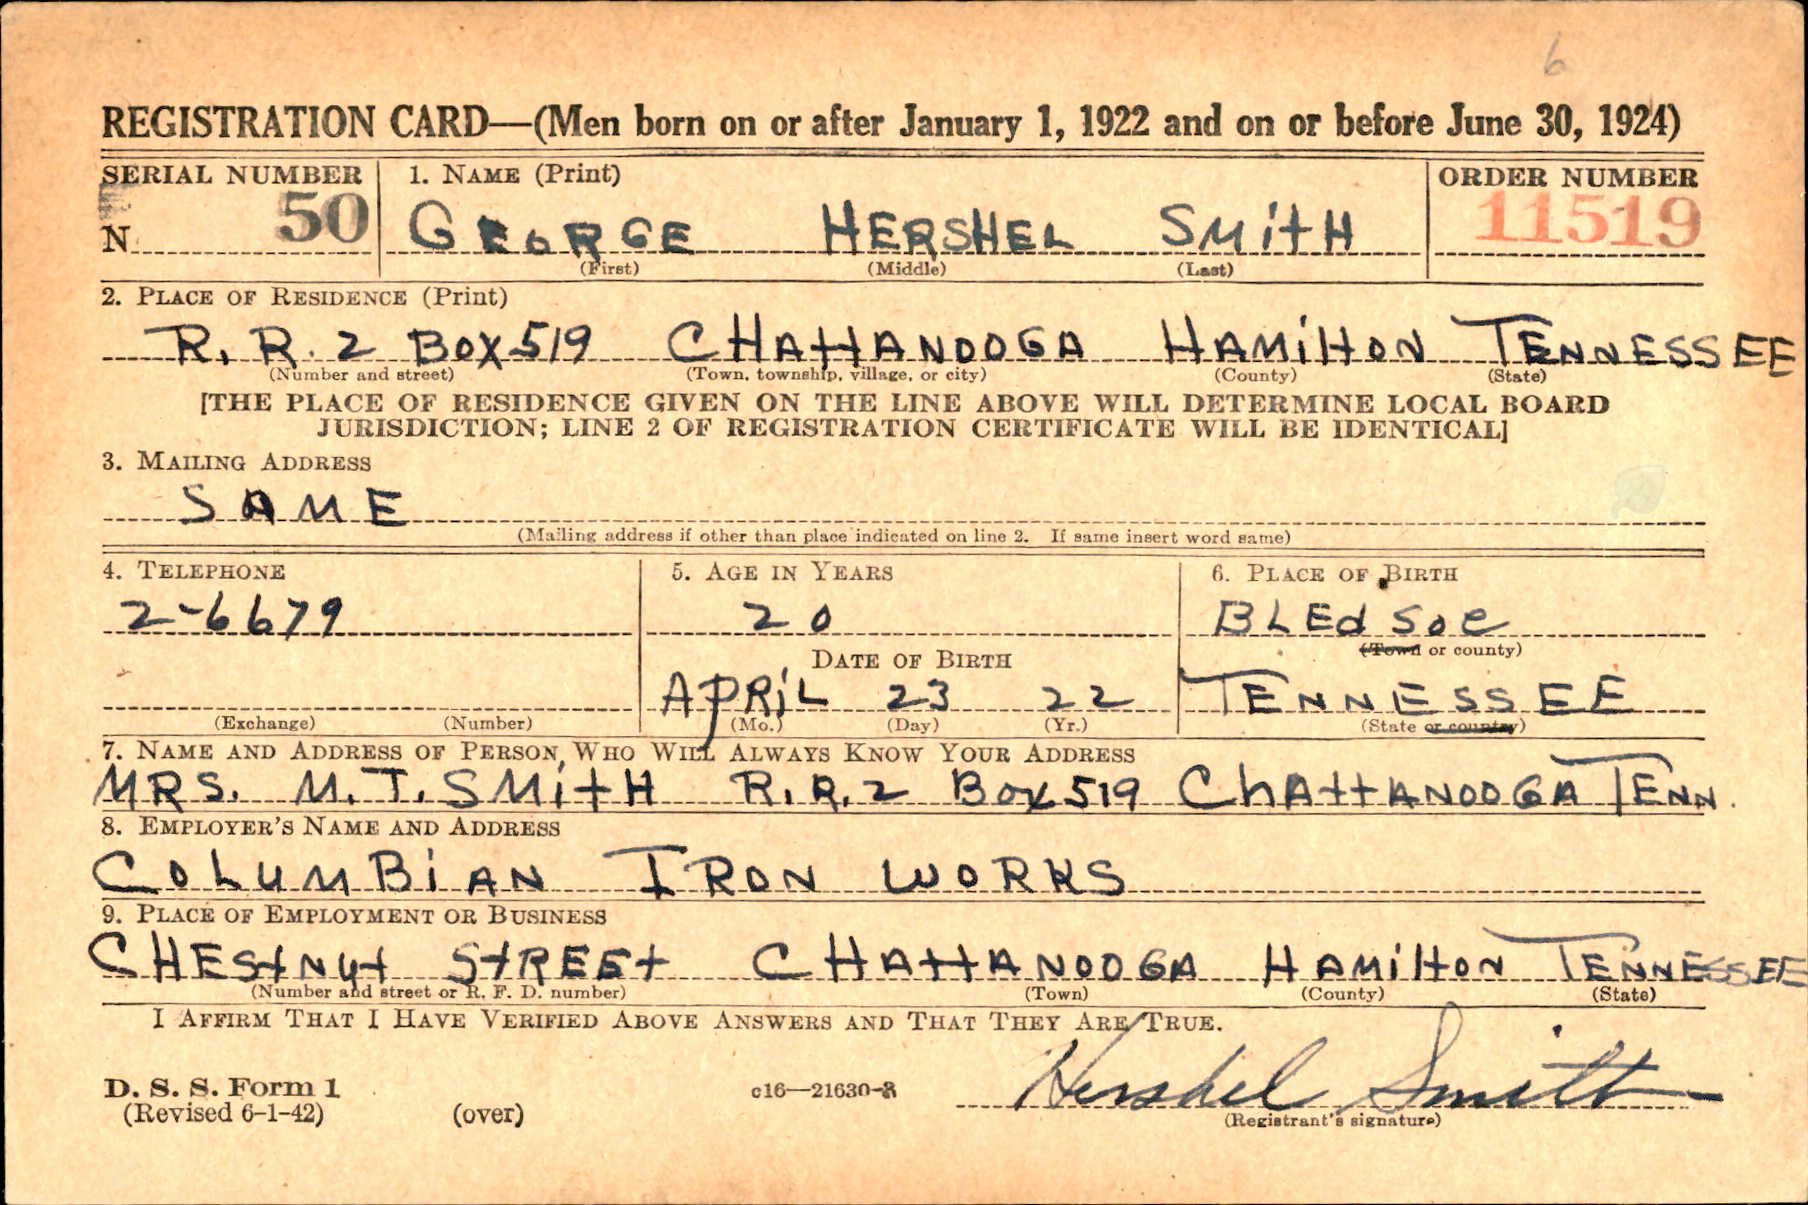 6
REGISTRATION CARD—(Men born on or after January 1, 1922 and on or before June 30, 1924)
SERIAL NUMBER 1. NAME (Print) ORDER NUMBER
N 50 GEORGE HERSHEL SMitH 11519
(First) (Middle) (Last)
2. PLACE OF RESIDENCE (Print)
R. R. 2 BOX 519 CHAttANOOGA HAMiltON TENNESSEE
(Number and street) (Town, township, village, or city) (County) (State)
[THE PLACE OF RESIDENCE GIVEN ON THE LINE ABOVE WILL DETERMINE LOCAL BOARD
JURISDICTION; LINE 2 OF REGISTRATION CERTIFICATE WILL BE IDENTICAL]
3. MAILING ADDRESS
SAME
(Mailing address if other than place indicated on line 2. If same insert word same)
4. TELEPHONE 5. AGE IN YEARS 6. PLACE OF BIRTH
2-6679 20 BLEdSoe
DATE OF BIRTH (Town or county)
APRiL 23 22 TENNESSEE
(Exchange) (Number) (Mo.) (Day) (Yr.) (State or country)
7. NAME AND ADDRESS OF PERSON WHO WILL ALWAYS KNOW YOUR ADDRESS
MRS. M. T. SMitH R. R. 2 Box 519 ChAttANOOGA TENN.
8. EMPLOYER'S NAME AND ADDRESS
COLUMBiAN IRON WORKS
9. PLACE OF EMPLOYMENT OR BUSINESS
CHEStNut StREEt CHAttANOOGA HAMiltON TENNESSEE
(Number and street or R. F. D. number) (Town) (County) (State)
I AFFIRM THAT I HAVE VERIFIED ABOVE ANSWERS AND THAT THEY ARE TRUE.
Hershel Smith
D. S. S. Form 1 c16—21630-2
(Revised 6-1-42) (over) (Registrant's signature)